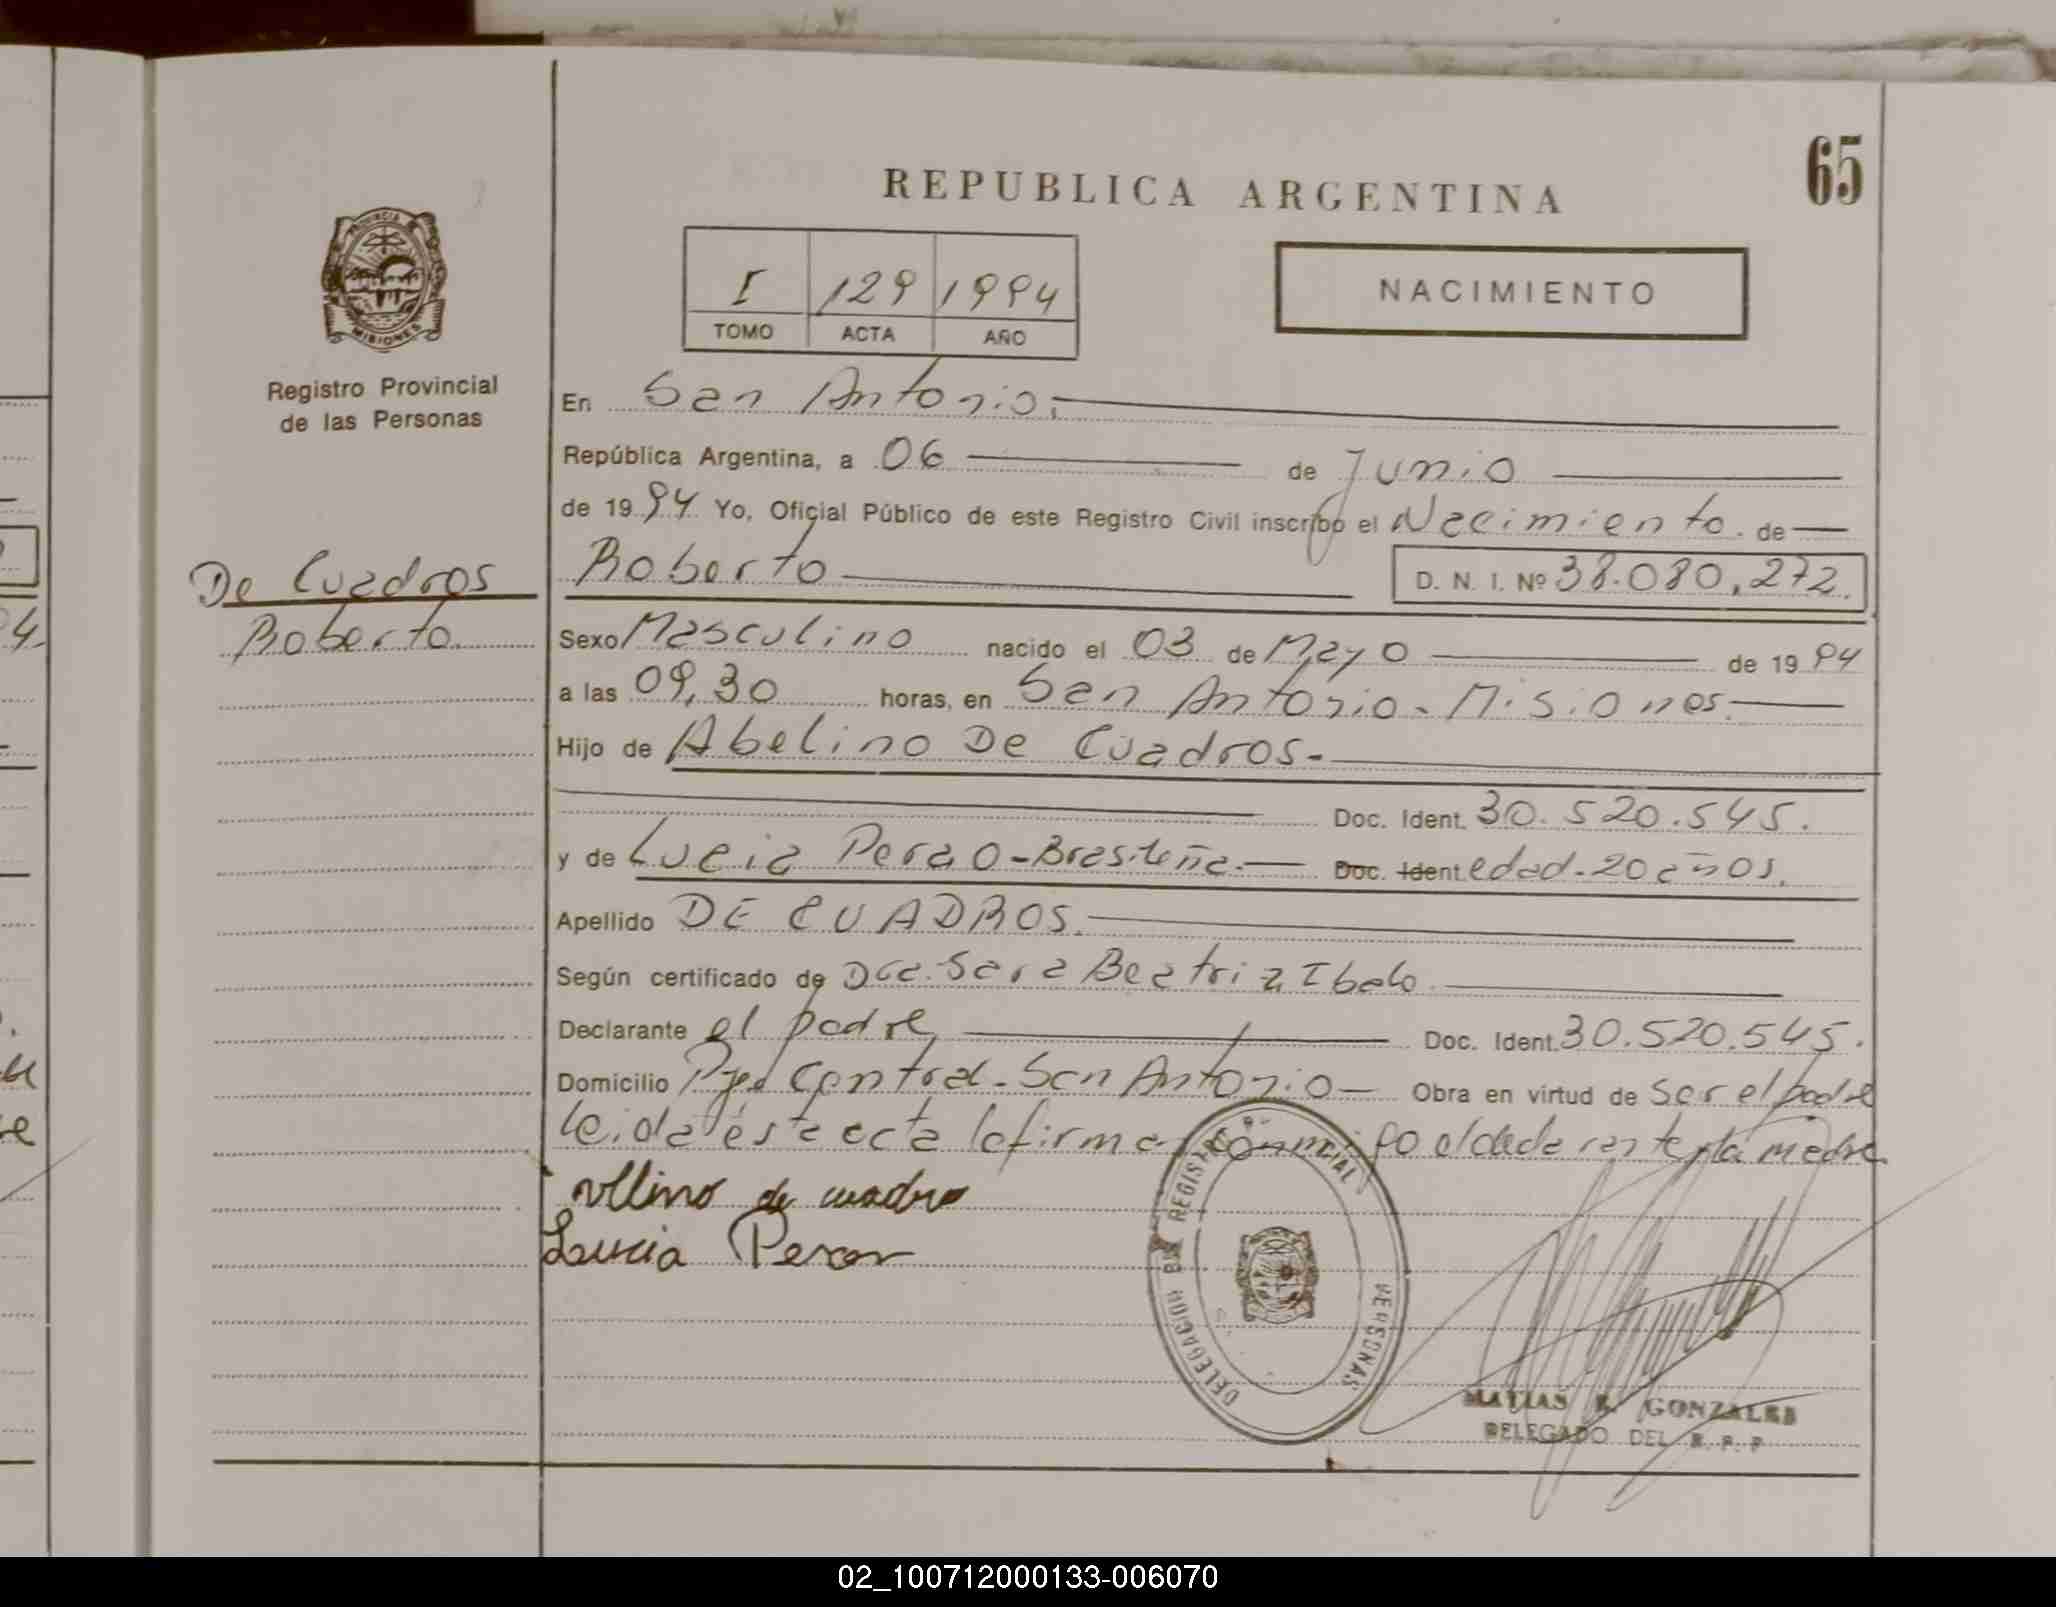 65
REPUBLICA ARGENTINA
PROVINCIA
MISIONES
Registro Provincial
de las Personas
I 129 1994
TOMO ACTA AÑO
NACIMIENTO
En San Antonio.
República Argentina, a 06 de Junio
de 1994 Yo, Oficial Público de este Registro Civil inscribo el Nacimiento de
De Cuadros
Roberto
Roberto D. N. I. Nº 38.080.272.
Sexo Masculino nacido el 03 de Mayo de 1994
a las 09,30 horas, en San Antonio - Misiones.
Hijo de Abelino De Cuadros.-
Doc. Ident. 30.520.545.
y de Lucia Perao - Brasileña.- Doc. Ident. edad - 20 años.
Apellido DE CUADROS.
Según certificado de Dra. Sara Beatriz
Declarante el padre Doc. Ident. 30.520.545.
Domicilio Pje Central - San Antonio - Obra en virtud de ser el padre
leida ésta acta la firman conmigo el declarante y la madre
de cuadro
Lucia
DELEGACION REGISTRO PROVINCIAL PERSONAS
MATIAS R. GONZALES
DELEGADO DEL R. P. P.
02_100712000133-006070